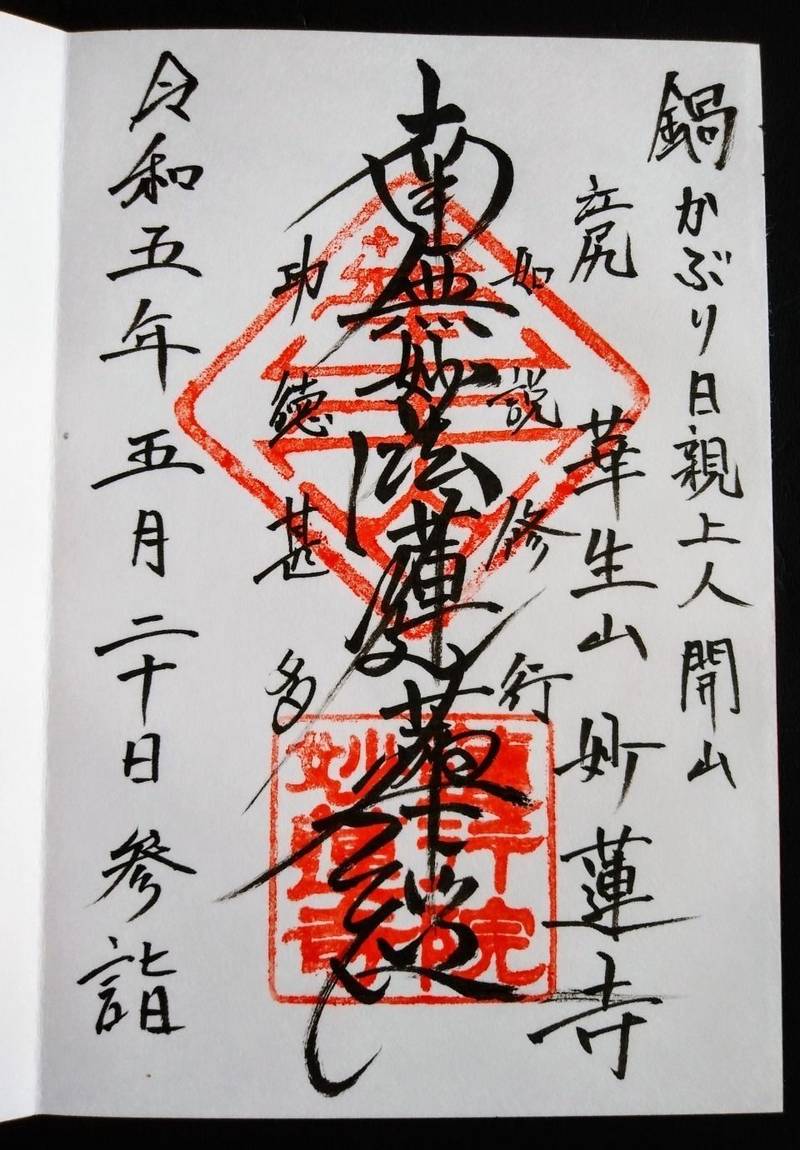 鍋かぶり日親上人開山
江尻
華生山 妙蓮寺
如説修行
南無妙法蓮華経
功徳甚多
令和五年五月二十日 参詣
妙蓮寺